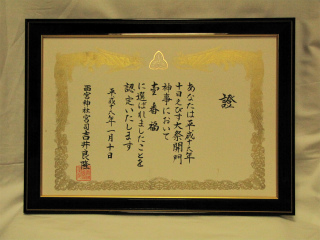 證
あなたは平成十八年
十日えびす大祭開門
神事において
壱番福
に選ばれましたことを
認定いたします
平成十八年一月十日
西宮神社宮司吉井良隆